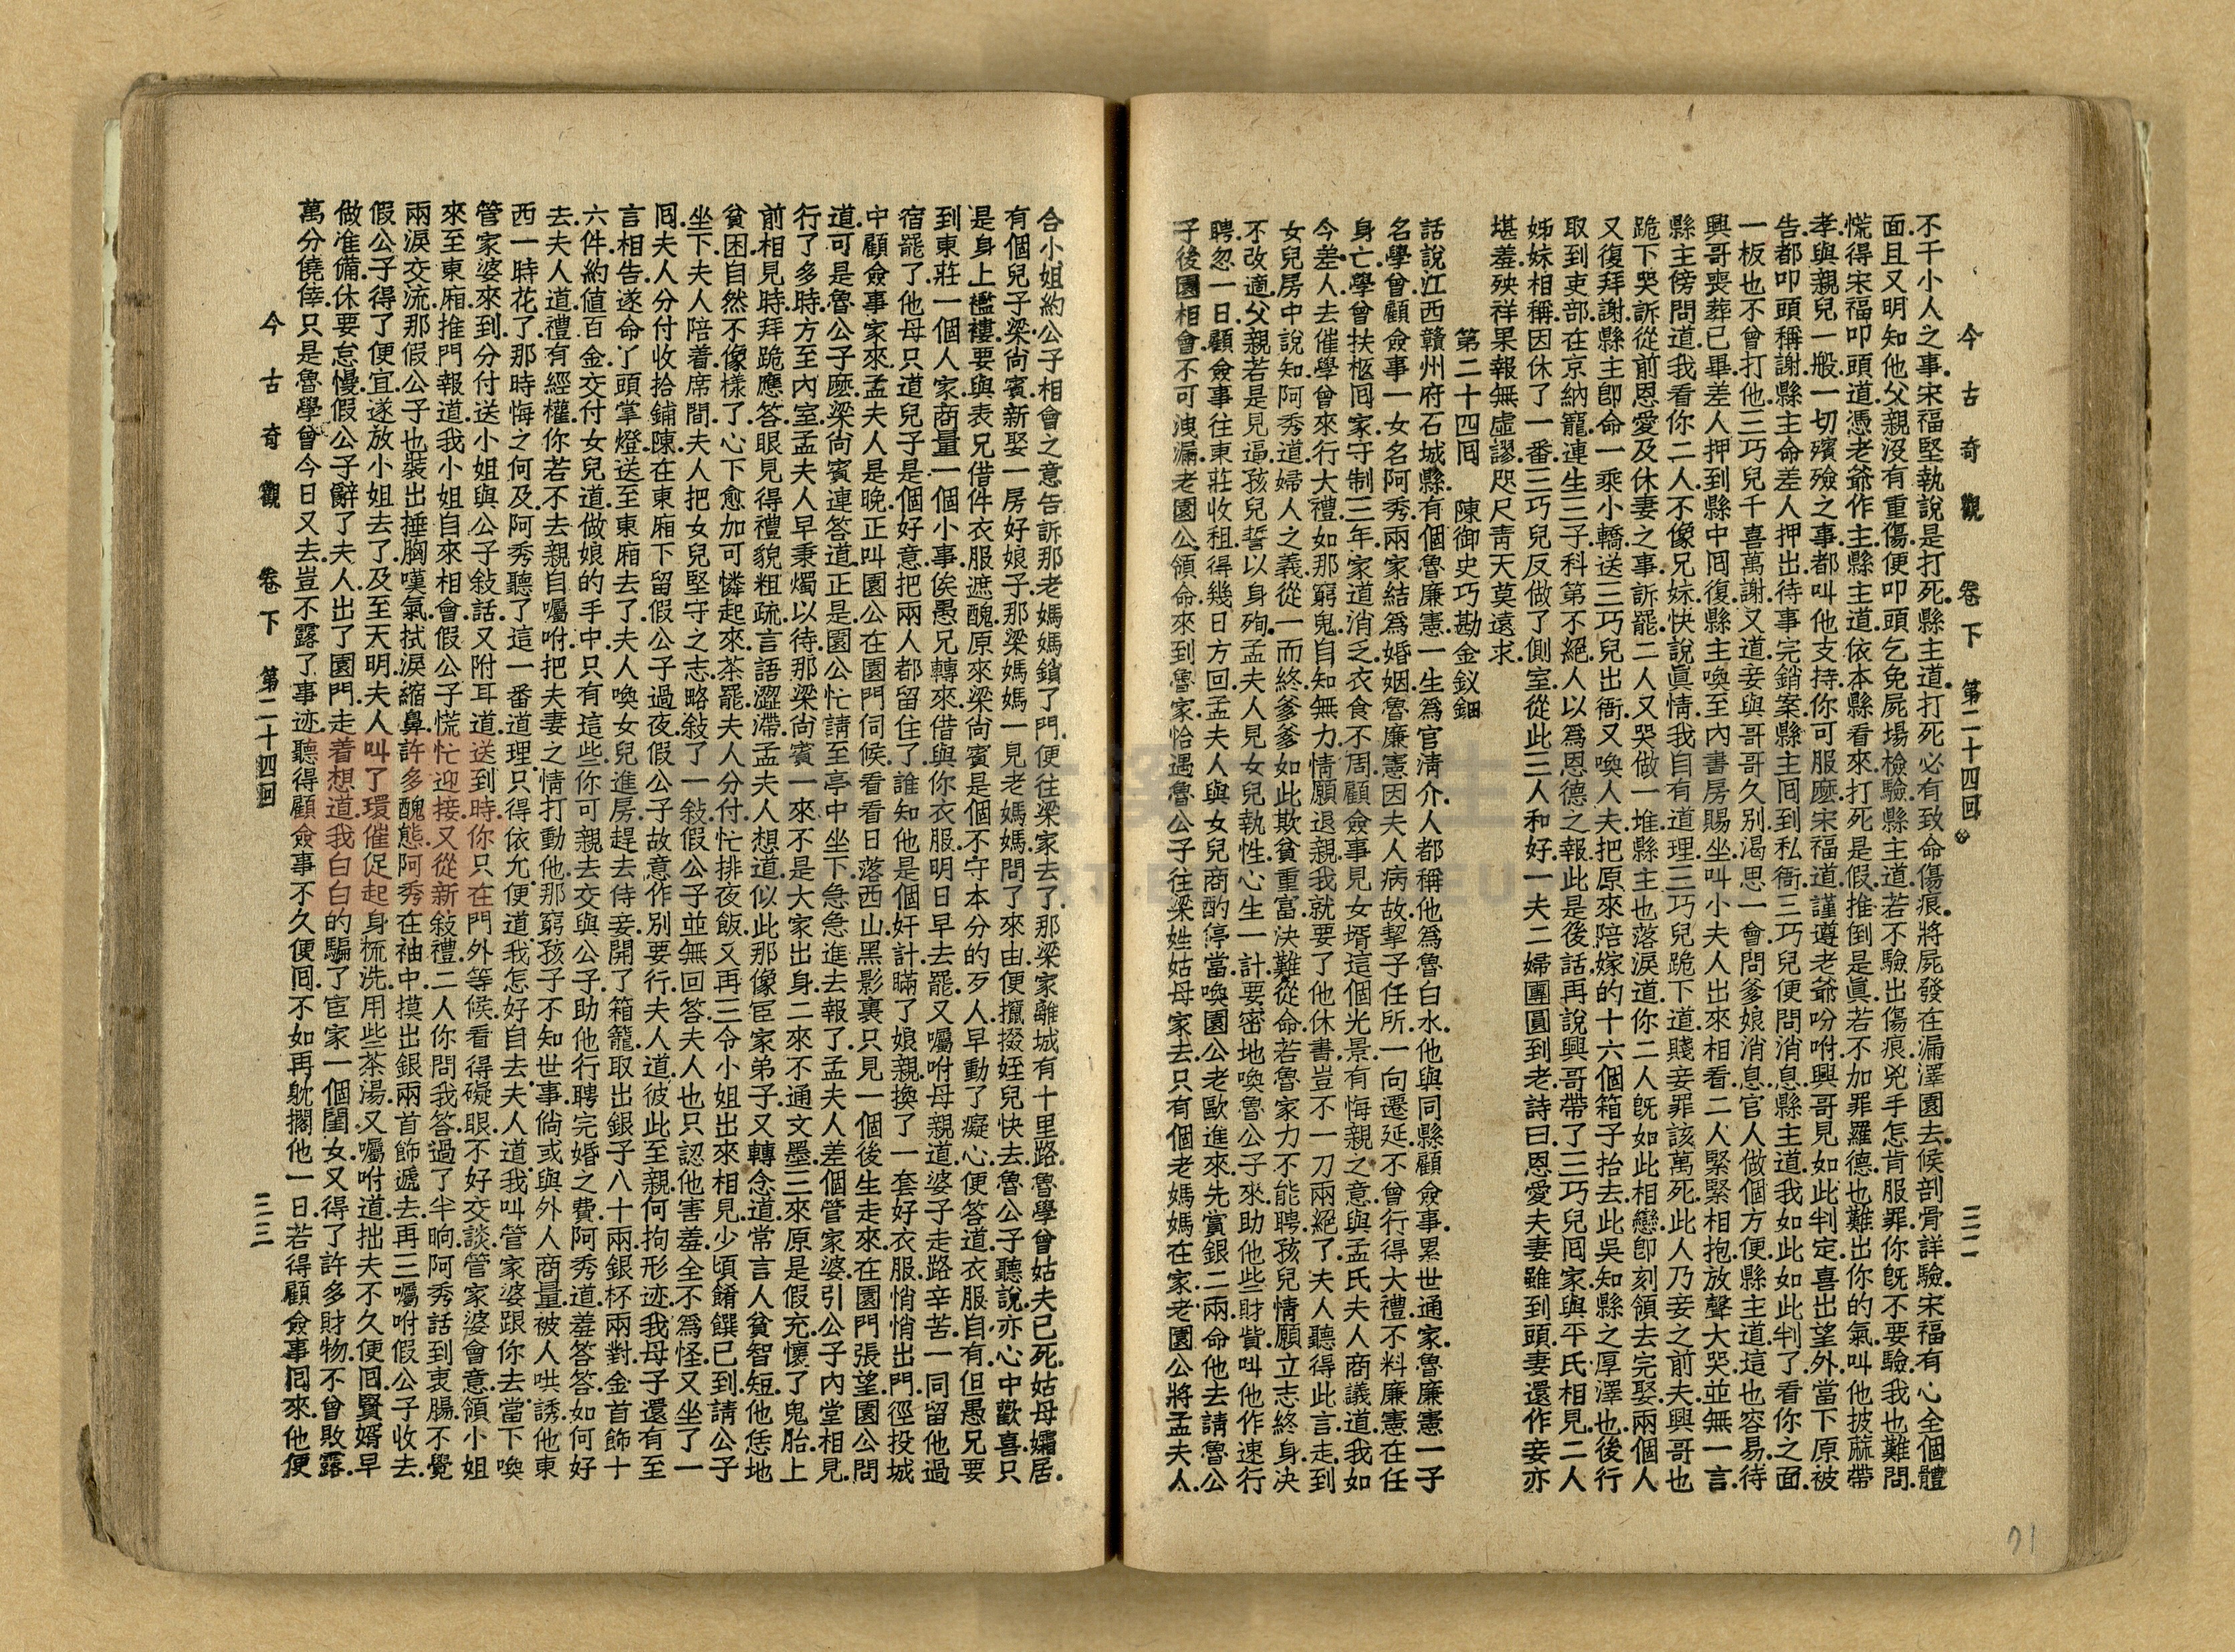 今古奇觀　卷下　第二十四回　三二
不干小人之事.宋福堅執說是打死.縣主道.打死必有致命傷痕.將屍發在漏澤園去.候剖骨詳驗.宋福有心全個體
面.且又明知他父親沒有重傷.便叩頭乞免屍塲檢驗.縣主道.若不驗出傷痕.兇手怎肯服罪.你旣不要驗.我也難問.
慌得宋福叩頭道.憑老爺作主.縣主道.依本縣看來.打死是假.推倒是眞.若不加罪羅德也難出你的氣.叫他披蔴帶
孝.與親兒一般.一切殯殮之事.都叫他支持.你可服麽.宋福道.謹遵老爺吩咐.興哥見如此判定.喜出望外.當下原被
告.都叩頭稱謝.縣主命差人押出.待事完銷案.縣主囘到私衙.三巧兒便問消息.縣主道.我如此如此判了.看你之面.
一板也不曾打他.三巧兒千喜萬謝.又道.妾與哥哥久別.渴思一會.問爹娘消息.官人做個方便.縣主道.這也容易.待
興哥喪葬已畢.差人押到縣中囘復.縣主喚至內書房賜坐.叫小夫人出來相看.二人緊緊相抱.放聲大哭.並無一言.
縣主傍問道.我看你二人.不像兄妹.快說眞情.我自有道理.三巧兒跪下道.賤妾罪該萬死.此人乃妾之前夫興哥也
跪下哭訴從前恩愛.及休妻之事.訴罷.二人又哭做一堆.縣主也落淚道.你二人旣如此相戀.卽刻領去完娶.兩個人
又復拜謝.縣主卽命一乘小轎.送三巧兒出衙.又喚人夫把原來陪嫁的十六個箱子抬去.此吳知縣之厚澤也.後行
取到吏部.在京納寵.連生三子.科第不絕.人以爲恩德之報.此是後話.再說興哥帶了三巧兒囘家.與平氏相見.二人
姊妹相稱.因休了一番.三巧兒反做了側室.從此三人和好.一夫二婦團圓到老.詩曰.恩愛夫妻雖到頭.妻還作妾亦
堪羞.殃祥果報無虛謬.咫尺靑天莫遠求.
第二十四囘　陳御史巧勘金釵鈿
話說江西贛州府石城縣.有個魯廉憲.一生爲官淸介.人都稱他爲魯白水.他與同縣顧僉事.累世通家.魯廉憲一子
名學曾.顧僉事一女名阿秀.兩家結爲婚姻.魯廉憲因夫人病故.挈子任所.一向遷延.不曾行得大禮.不料廉憲在任
身亡.學曾扶柩囘家.守制三年.家道消乏.衣食不周.顧僉事見女壻這個光景.有悔親之意.與孟氏夫人商議道.我如
今差人去催學曾來行大禮.如那窮鬼自知無力.情願退親.我就要了他休書.豈不一刀兩絕了.夫人聽得此言.走到
女兒房中說知.阿秀道.婦人之義.從一而終.爹爹如此欺貧重富.決難從命.若魯家力不能聘.孩兒情願立志終身.決
不改適.父親若是見逼.孩兒誓以身殉.孟夫人見女兒執性.心生一計.要密地喚魯公子來.助他些財貲.叫他作速行
聘.忽一日.顧僉事往東莊收租.得幾日方回.孟夫人與女兒商酌停當.喚園公老歐進來.先賞銀二兩.命他去請魯公
子後園相會.不可洩漏.老園公領命.來到魯家.恰遇魯公子往梁姓姑母家去.只有個老媽媽在家.老園公將孟夫人.
合小姐約公子相會之意告訴.那老媽媽鎖了門.便往梁家去了.那梁家離城有十里路.魯學曾姑夫已死.姑母孀居.
有個兒子.梁尙賓.新娶一房好娘子.那梁媽媽一見老媽媽.問了來由.便攛掇姪兒快去.魯公子聽說.亦心中歡喜.只
是身上襤褸.要與表兄借件衣服遮醜.原來梁尙賓是個不守本分的歹人.早動了癡心.便答道.衣服自有.但愚兄要
到東莊一個人家.商量一個小事.俟愚兄轉來.借與你衣服.明日早去罷.又囑咐母親道.婆子走路辛苦.一同留他過
宿罷了.他母只道兒子是個好意.把兩人都留住了.誰知他是個奸計.瞞了娘親.換了一套好衣服.悄悄出門.徑投城
中顧僉事家來.孟夫人是晚.正叫園公在園門伺候.看看日落西山.黑影裏只見一個後生走來.在園門張望.園公問
道.可是魯公子麽.梁尙賓連答道.正是.園公忙請至亭中坐下.急急進去報了.孟夫人差個管家婆.引公子內堂相見.
行了多時.方至內室.孟夫人早秉燭以待.那梁尙賓一來不是大家出身.二來不通文墨.三來原是假充.懷了鬼胎.上
前相見時.拜跪應答.眼見得禮貌粗疏.言語澀滯.孟夫人想道.似此那像宦家弟子.又轉念道.常言人貧智短.他恁地
貧困.自然不像樣了.心下愈加可憐起來.茶罷.夫人分付忙排夜飯.又再三令小姐出來相見.少頃.餚饌已到.請公子
坐下.夫人陪着席間.夫人把女兒堅守之志.略敍了一敍.假公子並無回答.夫人也只認他害羞.全不爲怪.又坐了一
囘.夫人分付收拾鋪陳.在東廂下留假公子過夜.假公子故意作別要行.夫人道.彼此至親.何拘形迹.我母子還有至
言相告.遂命丫頭掌燈.送至東廂去了.夫人喚女兒進房.趕去侍妾.開了箱籠.取出銀子八十兩.銀杯兩對.金首飾十
六件.約値百金.交付女兒道.做娘的手中只有這些.你可親去交與公子.助他行聘完婚之費.阿秀道.羞答答如何好
去.夫人道.禮有經權.你若不去親自囑咐.把夫妻之情打動他.那窮孩子不知世事.倘或與外人商量.被人哄誘.他東
西一時花了.那時悔之何及.阿秀聽了這一番道理.只得依允.便道.我怎好自去.夫人道.我叫管家婆跟你去.當下喚
管家婆來到.分付送小姐與公子敍話.又附耳道.送到時.你只在門外等候.看得礙眼.不好交談.管家婆會意.領小姐
來至東廂.推門報道.我小姐自來相會.假公子慌忙迎接.又從新敍禮.二人你問我答.過了半晌.阿秀話到衷腸.不覺
兩淚交流.那假公子也裝出捶胸嘆氣.拭淚縮鼻.許多醜態.阿秀在袖中摸出銀兩首飾遞去.再三囑咐.假公子收去.
假公子得了便宜.遂放小姐去了.及至天明.夫人叫了環催促起身梳洗.用些茶湯.又囑咐道.拙夫不久便囘.賢婿早
做准備.休要怠慢.假公子辭了夫人.出了園門.走着想道.我白白的騙了宦家一個閨女.又得了許多財物.不曾敗露.
萬分僥倖.只是魯學曾今日又去.豈不露了事迹.聽得顧僉事不久便囘.不如再躭擱他一日.若得顧僉事囘來.他便
今古奇觀　卷下　第二十四回　三三
71